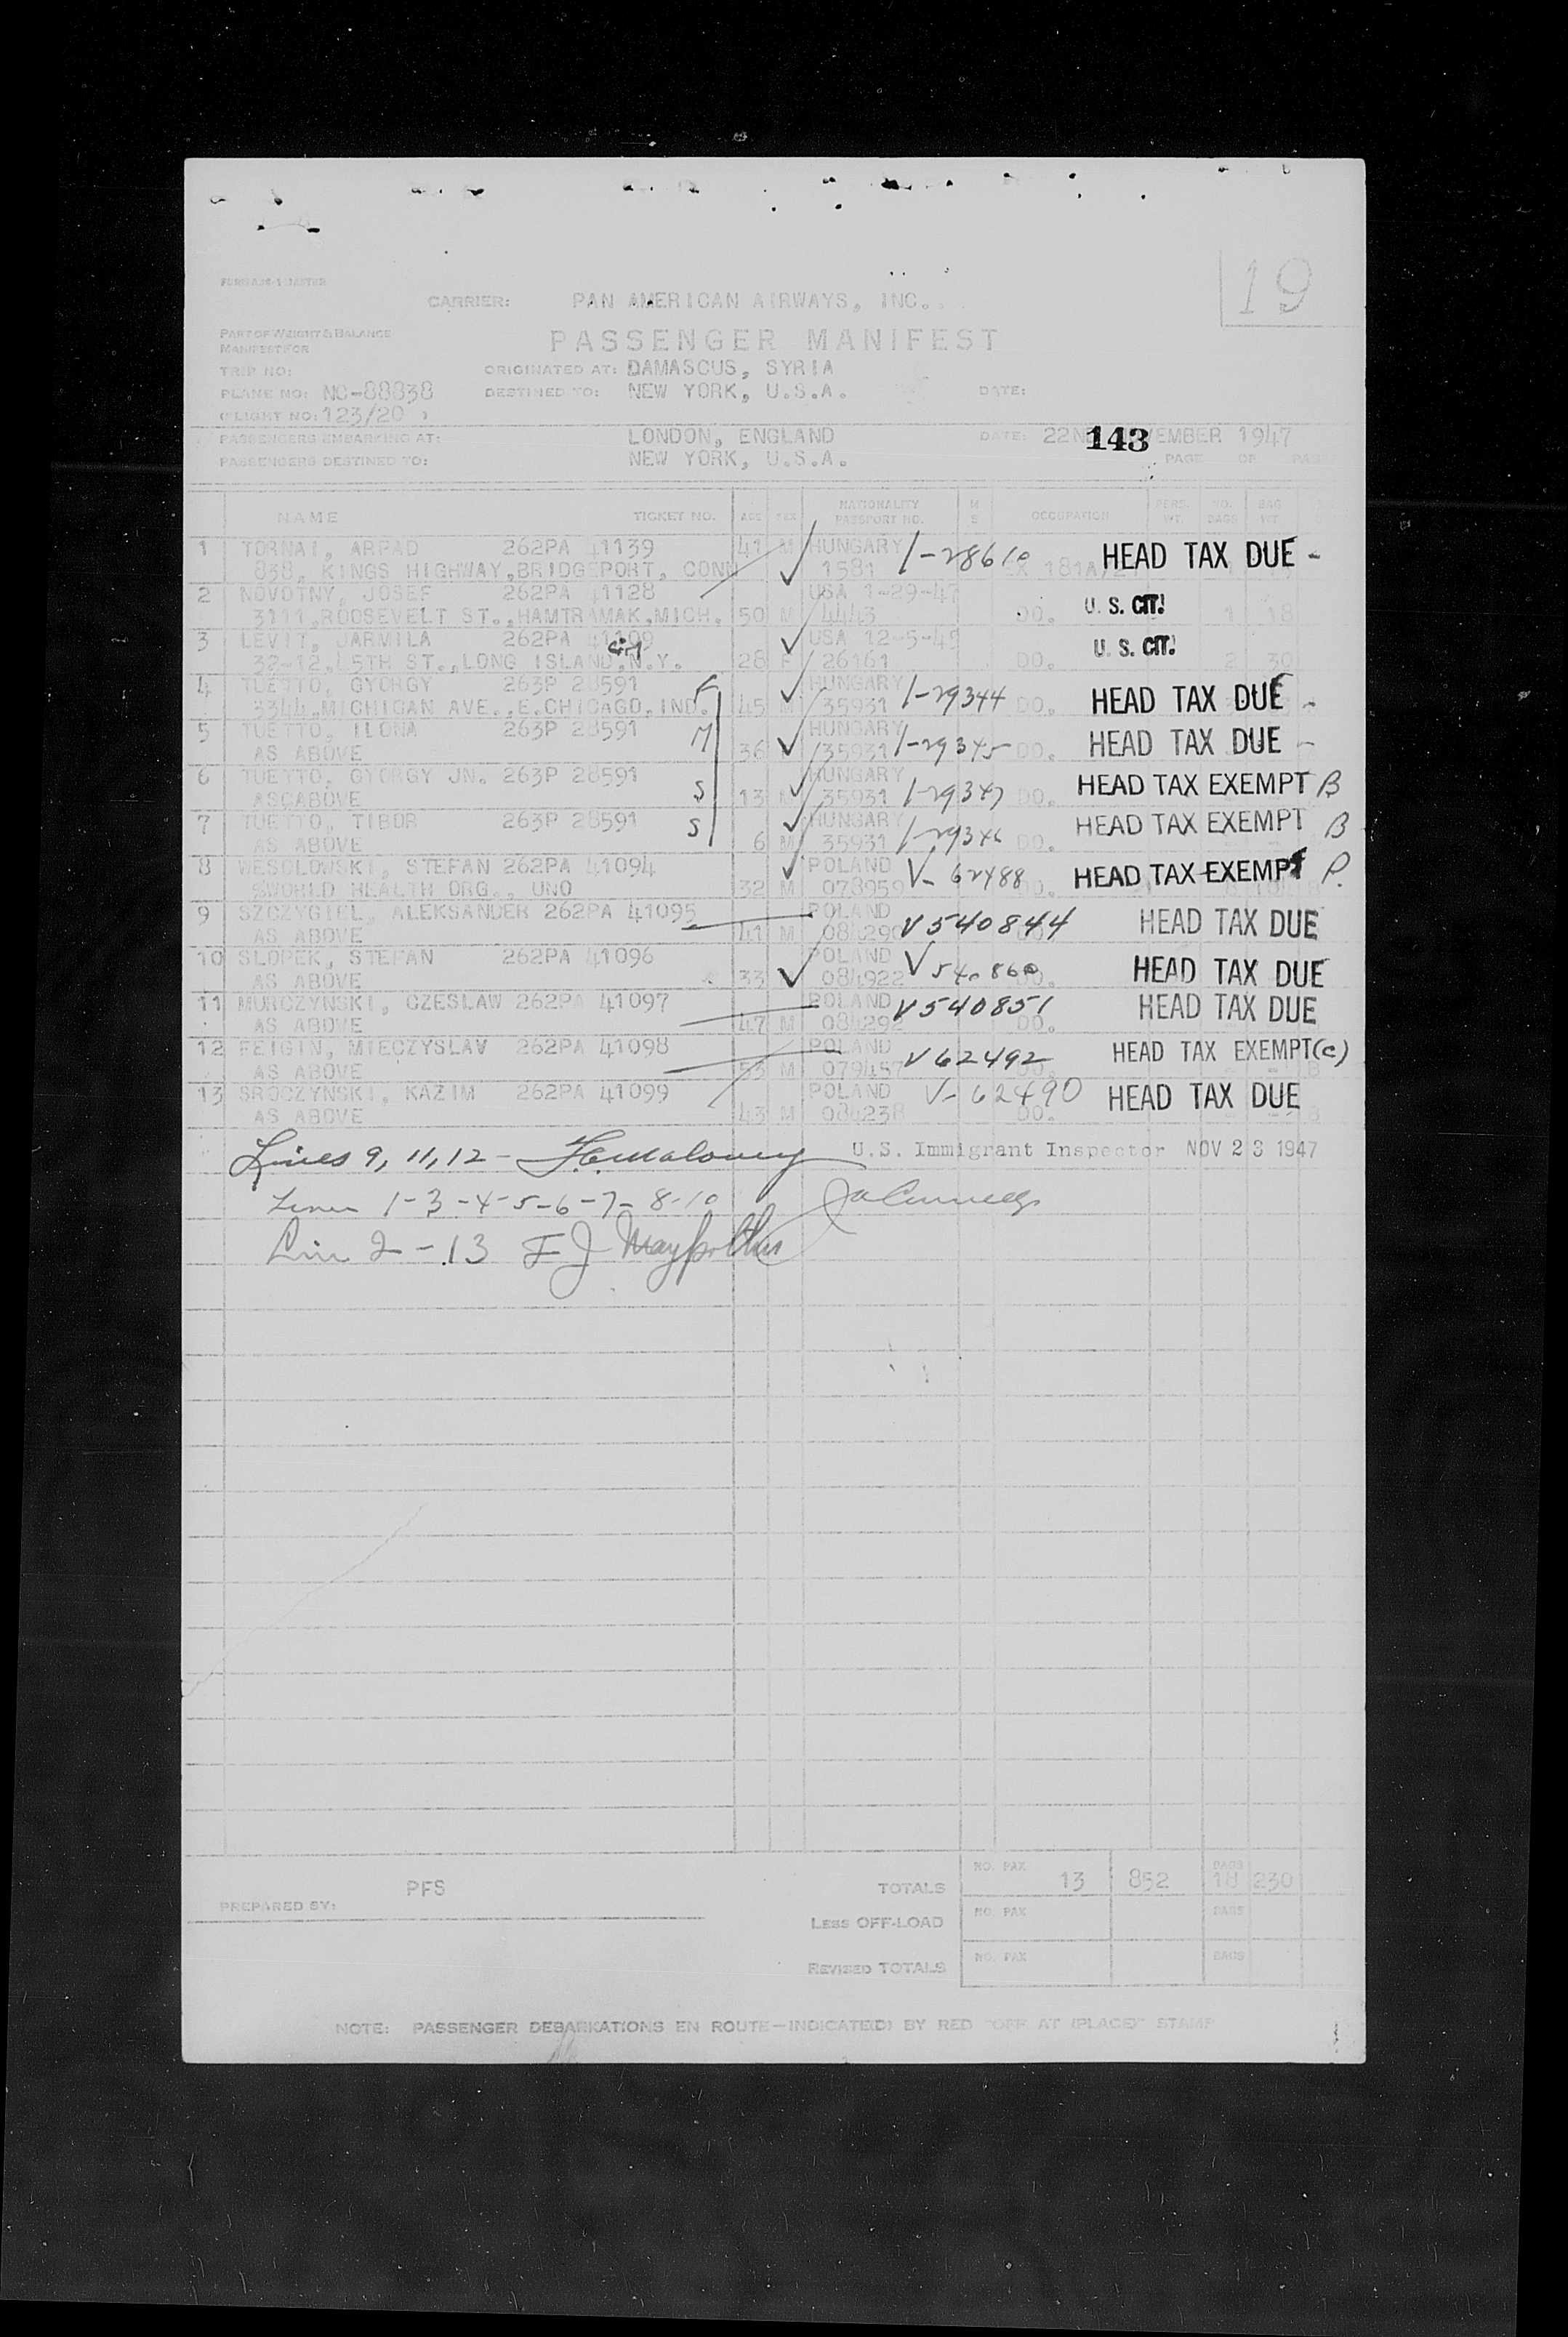 19
CARRIER: PAN AMERICAN AIRWAYS, INC.
PART OF WEIGHT & BALANCE
MANIFEST FOR
PASSENGER MANIFEST
TRIP NO: ORIGINATED AT: DAMASCUS, SYRIA
PLANE NO: NC-88838 DESTINED TO: NEW YORK, U.S.A. DATE:
(FLIGHT NO: 123/20 )
PASSENGERS EMBARKING AT: LONDON, ENGLAND DATE: 22 NOVEMBER 1947
143
PASSENGERS DESTINED TO: NEW YORK, U.S.A. PAGE OF
NAME TICKET NO. AGE SEX NATIONALITY PASSPORT NO. M S OCCUPATION PERS. WT. NO. BAGS BAG WT.
1 TORNAI, ARPAD 262PA 41139 41 M HUNGARY I-28610 HEAD TAX DUE -
838, KINGS HIGHWAY, BRIDGEPORT, CONN 1581
2 NOVOTNY, JOSEF 262PA 41128 USA 1-29-47 U. S. CIT!
3111, ROOSEVELT ST., HAMTRAMAK, MICH. 50 M 4443 DO. 1 18
3 LEVIT, JARMILA 262PA 41109 USA 12-5-45 U. S. CIT!
32-12, 15TH ST., LONG ISLAND, N.Y. 28 F 26161 DO. 2 30
4 TUETTO, GYORGY 263P 28591 F HUNGARY I-29344 HEAD TAX DUE -
3344, MICHIGAN AVE., E. CHICAGO, IND. 45 M 35931 DO.
5 TUETTO, ILONA 263P 28591 M HUNGARY I-29345 HEAD TAX DUE -
AS ABOVE 36 35931 DO.
6 TUETTO, GYORGY JN. 263P 28591 S HUNGARY I-29347 HEAD TAX EXEMPT B
ASCABOVE 13 M 35931 DO.
7 TUETTO, TIBOR 263P 28591 S HUNGARY I-29346 HEAD TAX EXEMPT B
AS ABOVE 6 M 35931 DO.
8 WESOLOWSKI, STEFAN 262PA 41094 POLAND V-62488 HEAD TAX EXEMPT P.
%WORLD HEALTH ORG., UNO 32 M 078959 DO.
9 SZCZYGIEL, ALEKSANDER 262PA 41095 POLAND V540844 HEAD TAX DUE
AS ABOVE 41 M
10 SLOPEK, STEFAN 262PA 41096 POLAND V540860 HEAD TAX DUE
AS ABOVE 33 084922 DO.
11 MORCZYNSKI, CZESLAW 262PA 41097 POLAND V540851 HEAD TAX DUE
AS ABOVE 47 M 084292 DO.
12 FEIGIN, MIECZYSLAW 262PA 41098 POLAND V62492 HEAD TAX EXEMPT (C)
AS ABOVE 53 M 079457 DO.
13 SROCZYNSKI, KAZIM 262PA 41099 POLAND V-62490 HEAD TAX DUE
AS ABOVE 43 M 084238 DO.
Lines 9, 11, 12 - F.C. Maloney U.S. Immigrant Inspector NOV 23 1947
Lines 1-3-4-5-6-7-8-10
Line 2-13 F J
PREPARED BY: PFS TOTALS NO. PAX 13 852 BAGS 18 230
LESS OFF-LOAD NO. PAX BAGS
REVISED TOTALS NO. PAX BAGS
NOTE: PASSENGER DEBARKATIONS EN ROUTE—INDICATE(D) BY RED "OFF AT (PLACE)" STAMP